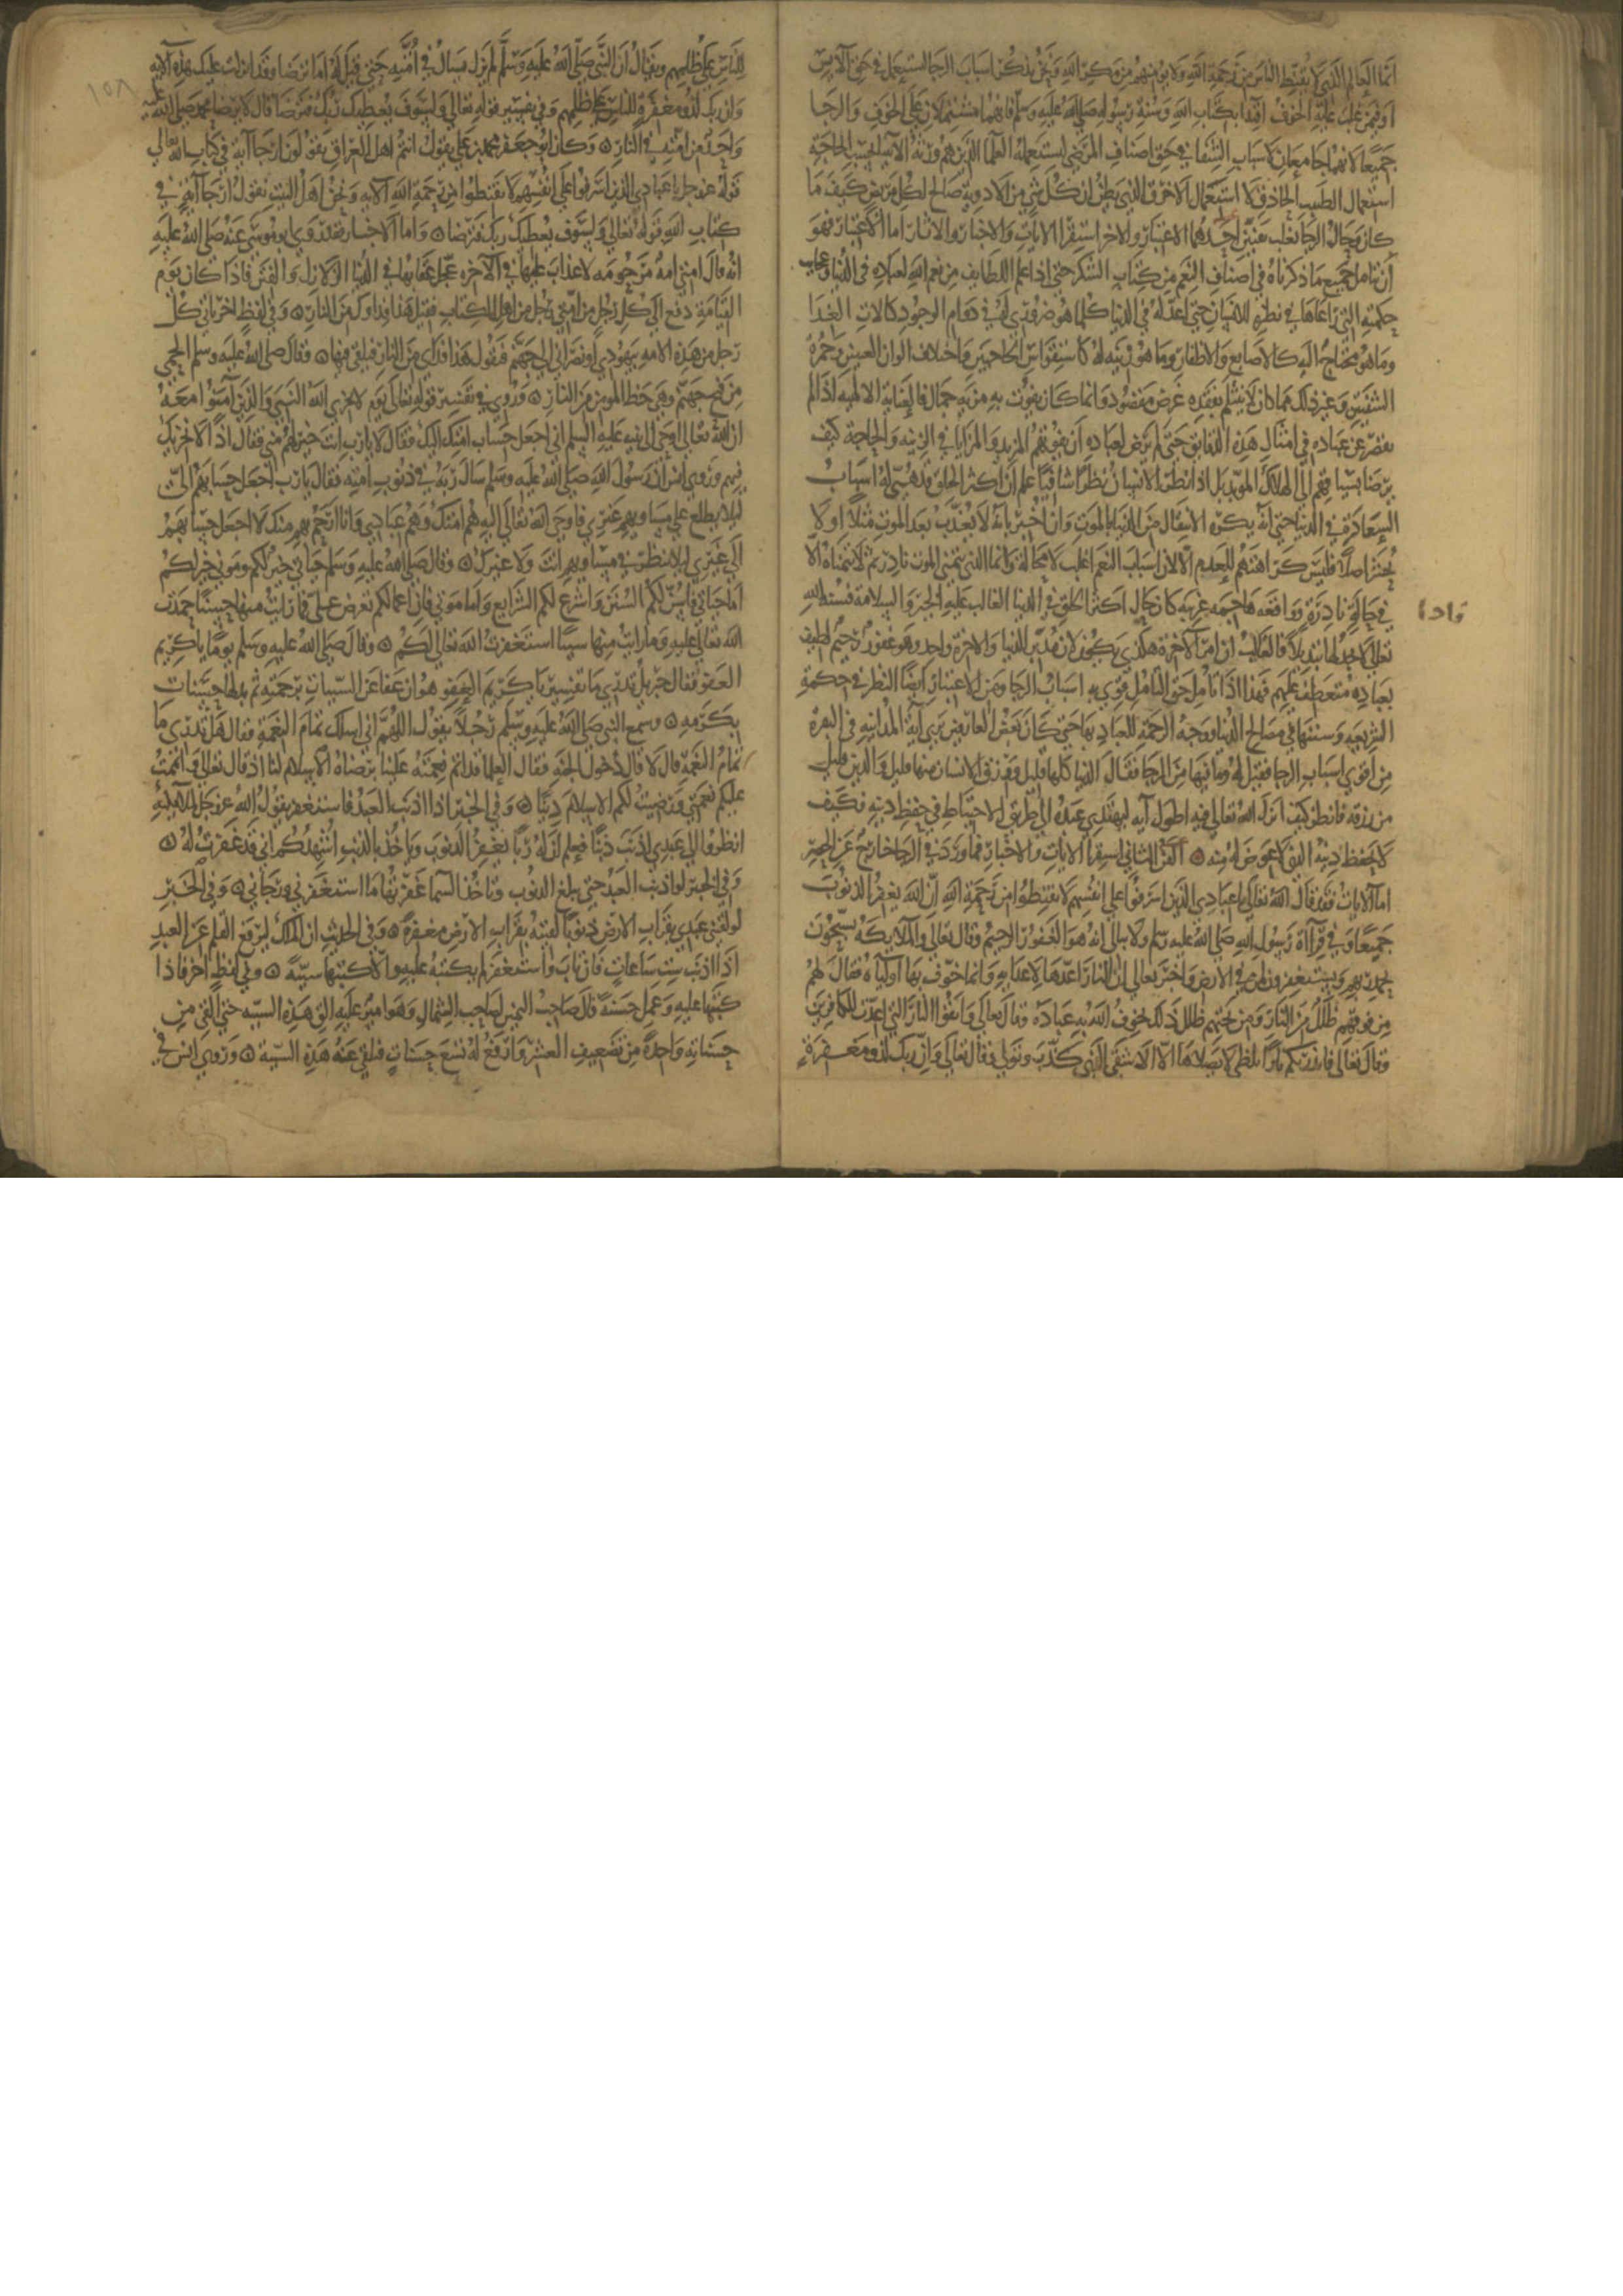 انما العالم الذي لا يقنط الناس من رحمة الله ولا يؤمنهم من مكر الله ونحن نذكر اسباب الرجا لتستعمل في حق الآيس
او فيمن غلب عليه الخوف اقتدا بكتاب الله وسنة رسوله صلي الله عليه وسلم فانهما مشتملان على الخوف والرجا
جميعا لانهما جامعان لاسباب الشفا في حق اصناف المرضي ليستعمله العلما الذين هم ورثة الانبيا بحسب الحاجة
استعمال الطبيب الحاذق لا استعمال الاخرق الذي يظن ان كل شي من الادوية صالح لكل مريض كيف ما
كان وحال الرجا تغلب بفنين احدهما الاعتبار والاخر استقرا الايات والاخبار والاثار اما الاعتبار فهو
ان يتامل جميع ما ذكرناه في اصناف النعم من كتاب الشكر حتي اذا علم اللطايف من نعم الله لعباده في الدنيا وعجايب
حكمته التي راعاها في فطرة الانسان حتي اعد له في الدنيا كلما هو ضروري له في دوام الوجود كالات الغذا
وما هو محتاج اليه كالاصابع والاظفار وما هو زينة له كاستقواس الحاجبين واختلاف الوان العينين وحمرة
الشفتين وغير ذلك مما كان لا ينثلم بفقده غرض مقصود وانما كان يفوت به مزية جمال فالعناية الالهية اذا لم
تقصر عن عباده في امثال هذه الدقايق حتى لم ترض لعباده ان يفوتهم المزيد والمزايا في الزينة والحاجة كيف
يرضا بسياقهم الى الهلاك المؤبد بل اذا نظر الانسان نظرا شافيا علم ان اكثر الخلق قد هيئ له اسباب
السعادة في الدنيا حتي انه يكره الانتقال من الدنيا بالموت وان اخبر بانه لا يعذب بعد الموت مثلا او لا
يحشر اصلا فليس كراهتهم للعدم الا لان اسباب النعم اغلب لا محالة وانما الذي يتمني الموت نادر ثم لا يتمناه الا
في حالة نادرة وواقعة هاجمة غريبة فاذا كان حال اكثر الخلق في الدنيا الغالب عليه الخير والسلامة فسنة الله
تعالى لا تجد لها تبديلا فالغالب ان امر الآخرة هكذي يكون لان مدبر الدنيا والاخرة واحد وهو غفور رحيم لطيف
بعباده متعطف عليهم فهذا اذا تامل حق التامل قوي به اسباب الرجا ومن الاعتبار ايضا النظر في حكمة
الشريعة وسننها في مصالح الدنيا ووجه الرحمة للعباد بها حتي كان بعض العارفين يري آية المداينة في البقرة
من اقوي اسباب الرجا فقيل له وما فيها من الرجا فقال الدنيا كلها قليل ورزق الانسان منها قليل والدين قليل
من رزقه فانظر كيف انزل الله تعالي فيه اطول آيه ليهتدي عبده الي طريق الاحتياط في حفظ دينه فكيف
لا يحفظ دينه الذي لا عوض له منه ۞ الفن الثاني استقرا الايات والاخبار فما ورد في الرجا خارج عن الحصر
اما الايات فقد قال الله تعالى يا عبادي الذين اسرفوا علي انفسهم لا تقنطوا من رحمة الله ان الله يغفر الذنوب
جميعا وفي قرآاة رسول الله صلي الله عليه وسلم ولا يبالي انه هو الغفور الرحيم وقال تعالي والملايكة يسبحون
بحمد ربهم ويستغفرون لمن في الارض واخبر تعالي ان النار اعدها لاعدايه وانما خوف بها اولياه فقال لهم
من فوقهم ظلل من النار ومن تحتهم ظلل ذلك يخوف الله به عباده وقال تعالي واتقوا النار التي اعدت للكافرين
وقال تعالى فانذرتكم نارا تلظي لا يصلاها الا الاشقي الذي كذب وتولي وقال تعالي وان ربك لذو مغفرة
فاذا
١٥٨
للناس على ظلمهم ويقال ان النبي صلى الله عليه وسلم لم يزل يسال في امته حتي قيل له اما ترضا وقد انزلت عليك هذه الآية
وان ربك لذو مغفرة للناس على ظلمهم وفي تفسير قوله تعالى ولسوف يعطيك ربك فترضا قال لا يرضا محمد صلي الله عليه
وواحد من امته في النار ۞ وكان ابو جعفر محمد بن علي يقول انتم اهل العراق تقولون ارجا آية في كتاب الله تعالى
قوله عز وجل يا عبادي الذين اسرفوا علي انفسهم لا تقنطوا من رحمة الله الايه ونحن اهل البيت نقول ارجا آية في
كتاب الله قوله تعالي ولسوف يعطيك ربك فترضا ۞ واما الاخبار فقد روي ابو موسي عنه صلي الله عليه
انه قال امتي امة مرحومه لا عذاب عليها في الآخره عجل عقابها في الدنيا الزلازل والفتن فاذا كان يوم
القيامة دفع الي كل رجل من امتي رجل من اهل الكتاب فقيل هذا فداوك من النار ۞ وفي لفظ اخر ياتي كل
رجل من هذه الامة بيهودي او نصراني الي جهنم فيقول هذا فداي من النار فيلقي فيها ۞ وقال صلي الله عليه وسلم الحمي
من فيح جهنم وهي حظ المومن من النار ۞ وروي في تفسير قوله تعالى يوم لا يخزي الله النبي والذين آمنوا معه
ان الله تعالى اوحي الي نبيه عليه السلم اني اجعل حساب امتك اليك فقال لا يا رب انت خير لهم مني فقال اذا لا نخزيك
فيهم وروي انس ان رسول الله صلي الله عليه وسلم سال ربه في ذنوب امته فقال يا رب اجعل حسابهم الي
ليلا يطلع علي مساويهم غيري فاوحي الله تعالى اليه هم امتك وهم عبادي وانا ارحم بهم منك لا اجعل حسابهم
الي غيري ليلا ينظر في مساويهم انت ولا غيرك ۞ وقال صلي الله عليه وسلم حياتي خير لكم وموتي خير لكم
اما حياتي فاسن لكم السنن واشرع لكم الشرايع واما موتي فان اعمالكم تعرض علي فما رايت منها حسنا حمدت
الله تعالى عليه وما رايت منها سيئا استغفرت الله تعالي لكم ۞ وقال صلي الله عليه وسلم يوما يا كريم
العفو فقال جبريل تدري ما تفسير يا كريم العفو هو ان عفا عن السيئات برحمته ثم بدلها حسنات
بكرمه ۞ وسمع النبي صلي الله عليه وسلم رجلا يقول اللهم اني اسلك تمام النعمة فقال هل تدري ما
تمام النعمة قال لا قال دخول الجنة فقال العلما قد اتم نعمته علينا برضاه الاسلام لنا اذ قال تعالى واتممت
عليكم نعمتي ورضيت لكم الاسلام دينا ۞ وفي الخبر اذا اذنب العبد فاستغفر يقول الله عز وجل للملايكة
انظروا الي عبدي اذنب ذنبا فعلم ان له ربا يغفر الذنوب وياخذ بالذنب اشهدكم اني قد غفرت له ۞
وفي الخبر لو اذنب العبد حتي يبلغ الذنوب عنان السما غفرتها ما استغفرني ورجاني ۞ وفي الخبر
لو لقيني عبدي بقراب الارض ذنوبا لقيته بقراب الارض مغفرة ۞ وفي الحديث ان الملك ليرفع القلم عن العبد
اذا اذنب ست ساعات فان تاب واستغفر لم يكتبه عليه والا كتبها سيئة ۞ وفي لفظ اخر فاذا
كتبها عليه وعمل حسنة قال صاحب اليمين لصاحب الشمال وهو امير عليه الق هذه السيئه حتي القي من
حسناته واحدة من تضعيف العشر وارفع له تسع حسنات فيلقي عنه هذه السيئة ۞ وروي انس في